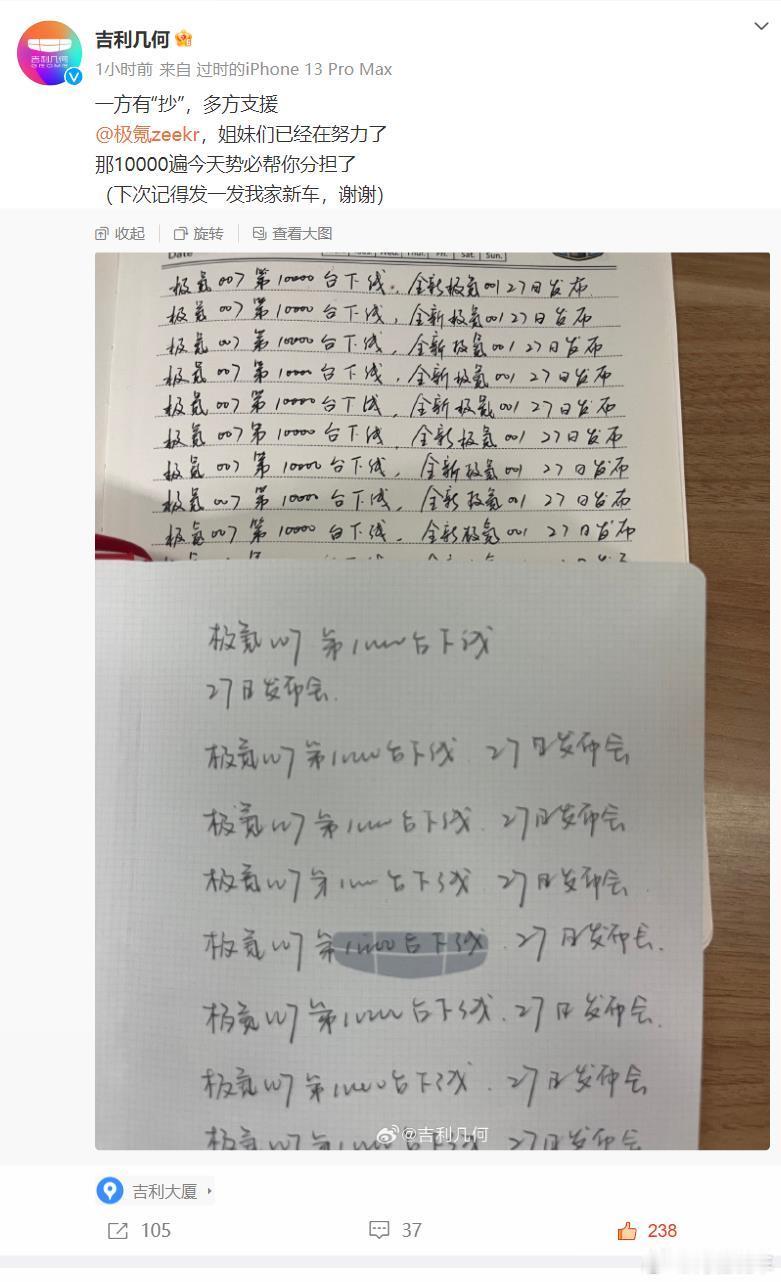 吉利几何
1小时前 来自 过时的iPhone 13 Pro Max
一方有“抄”，多方支援
@极氪zeekr，姐妹们已经在努力了
那10000遍今天势必帮你分担了
（下次记得发一发我家新车，谢谢）
收起 旋转 查看大图
Date Sat. Sun.
极氪007第10000台下线，全新极氪001 27日发布
极氪007第10000台下线，全新极氪001 27日发布
极氪007第10000台下线，全新极氪001 27日发布
极氪007第10000台下线，全新极氪001 27日发布
极氪007第10000台下线，全新极氪001 27日发布
极氪007第10000台下线，全新极氪001 27日发布
极氪007第10000台下线，全新极氪001 27日发布
极氪007第10000台下线，全新极氪001 27日发布
极氪007第10000台下线，全新极氪001 27日发布
极氪007第10000台下线
27日发布会.
极氪007第10000台下线 27日发布会
极氪007第10000台下线. 27日发布会
极氪007第10000台下线 27日发布会
极氪007第10000台下线. 27日发布会.
极氪007第10000台下线. 27日发布会.
极氪007第10000台下线. 27日发布会
极氪007第10000台下线. 27日发布会
@吉利几何
吉利大厦
105 37 238